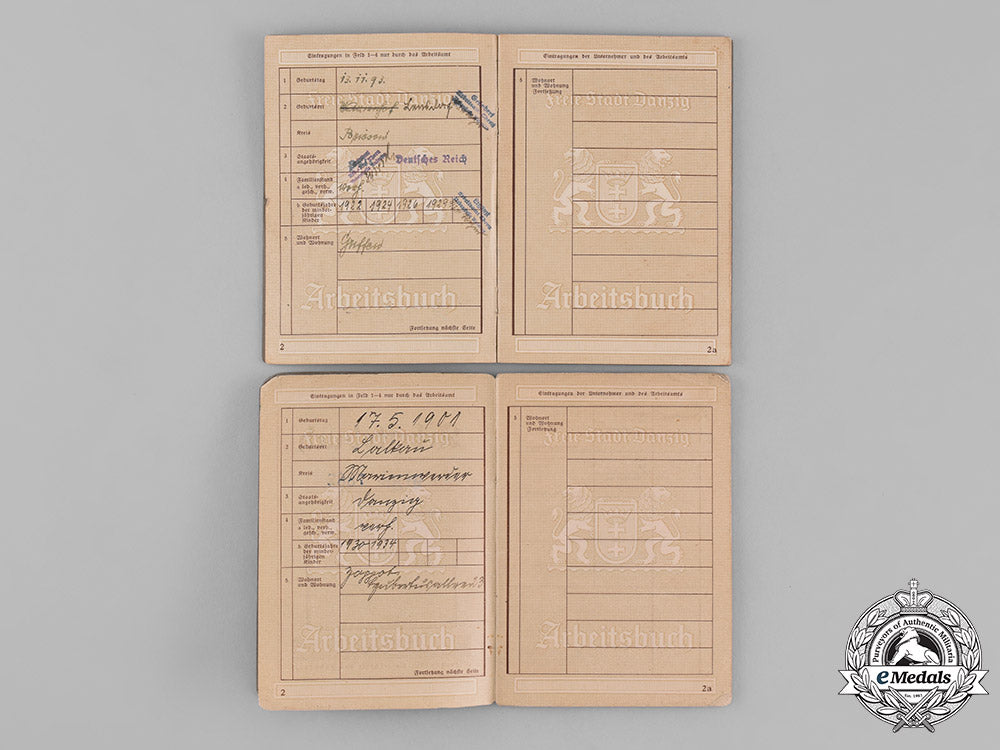 Eintragungen in Feld 1—4 nur durch das Arbeitsamt
1 Geburtstag 13. 11. 93.
Freie Stadt Danzig
2 Geburtsort
Kreis
3 Staats-
angehörigkeit Deutsches Reich
4 Familienstand
a led., verh.,
gesch., verw. verh.
b Geburtsjahre
der minder-
jährigen
Kinder 1922 1924 1926 1929
5 Wohnort
und Wohnung
Arbeitsbuch
Fortsetzung nächste Seite
2
Eintragungen der Unternehmer und des Arbeitsamts
5 Wohnort
und Wohnung
Fortsetzung
Freie Stadt Danzig
Arbeitsbuch
2a
Eintragungen in Feld 1—4 nur durch das Arbeitsamt
1 Geburtstag 17. 5. 1901
Freie Stadt Danzig
2 Geburtsort Lalkau
Kreis Marienwerder
3 Staats-
angehörigkeit Danzig
4 Familienstand
a led., verh.,
gesch., verw. verh.
b Geburtsjahre
der minder-
jährigen
Kinder 1930 1934
5 Wohnort
und Wohnung Zoppot
Hubertusallee 3
Arbeitsbuch
Fortsetzung nächste Seite
2
Eintragungen der Unternehmer und des Arbeitsamts
5 Wohnort
und Wohnung
Fortsetzung
Freie Stadt Danzig
Arbeitsbuch
2a
Purveyors of Authentic Militaria
eMedals